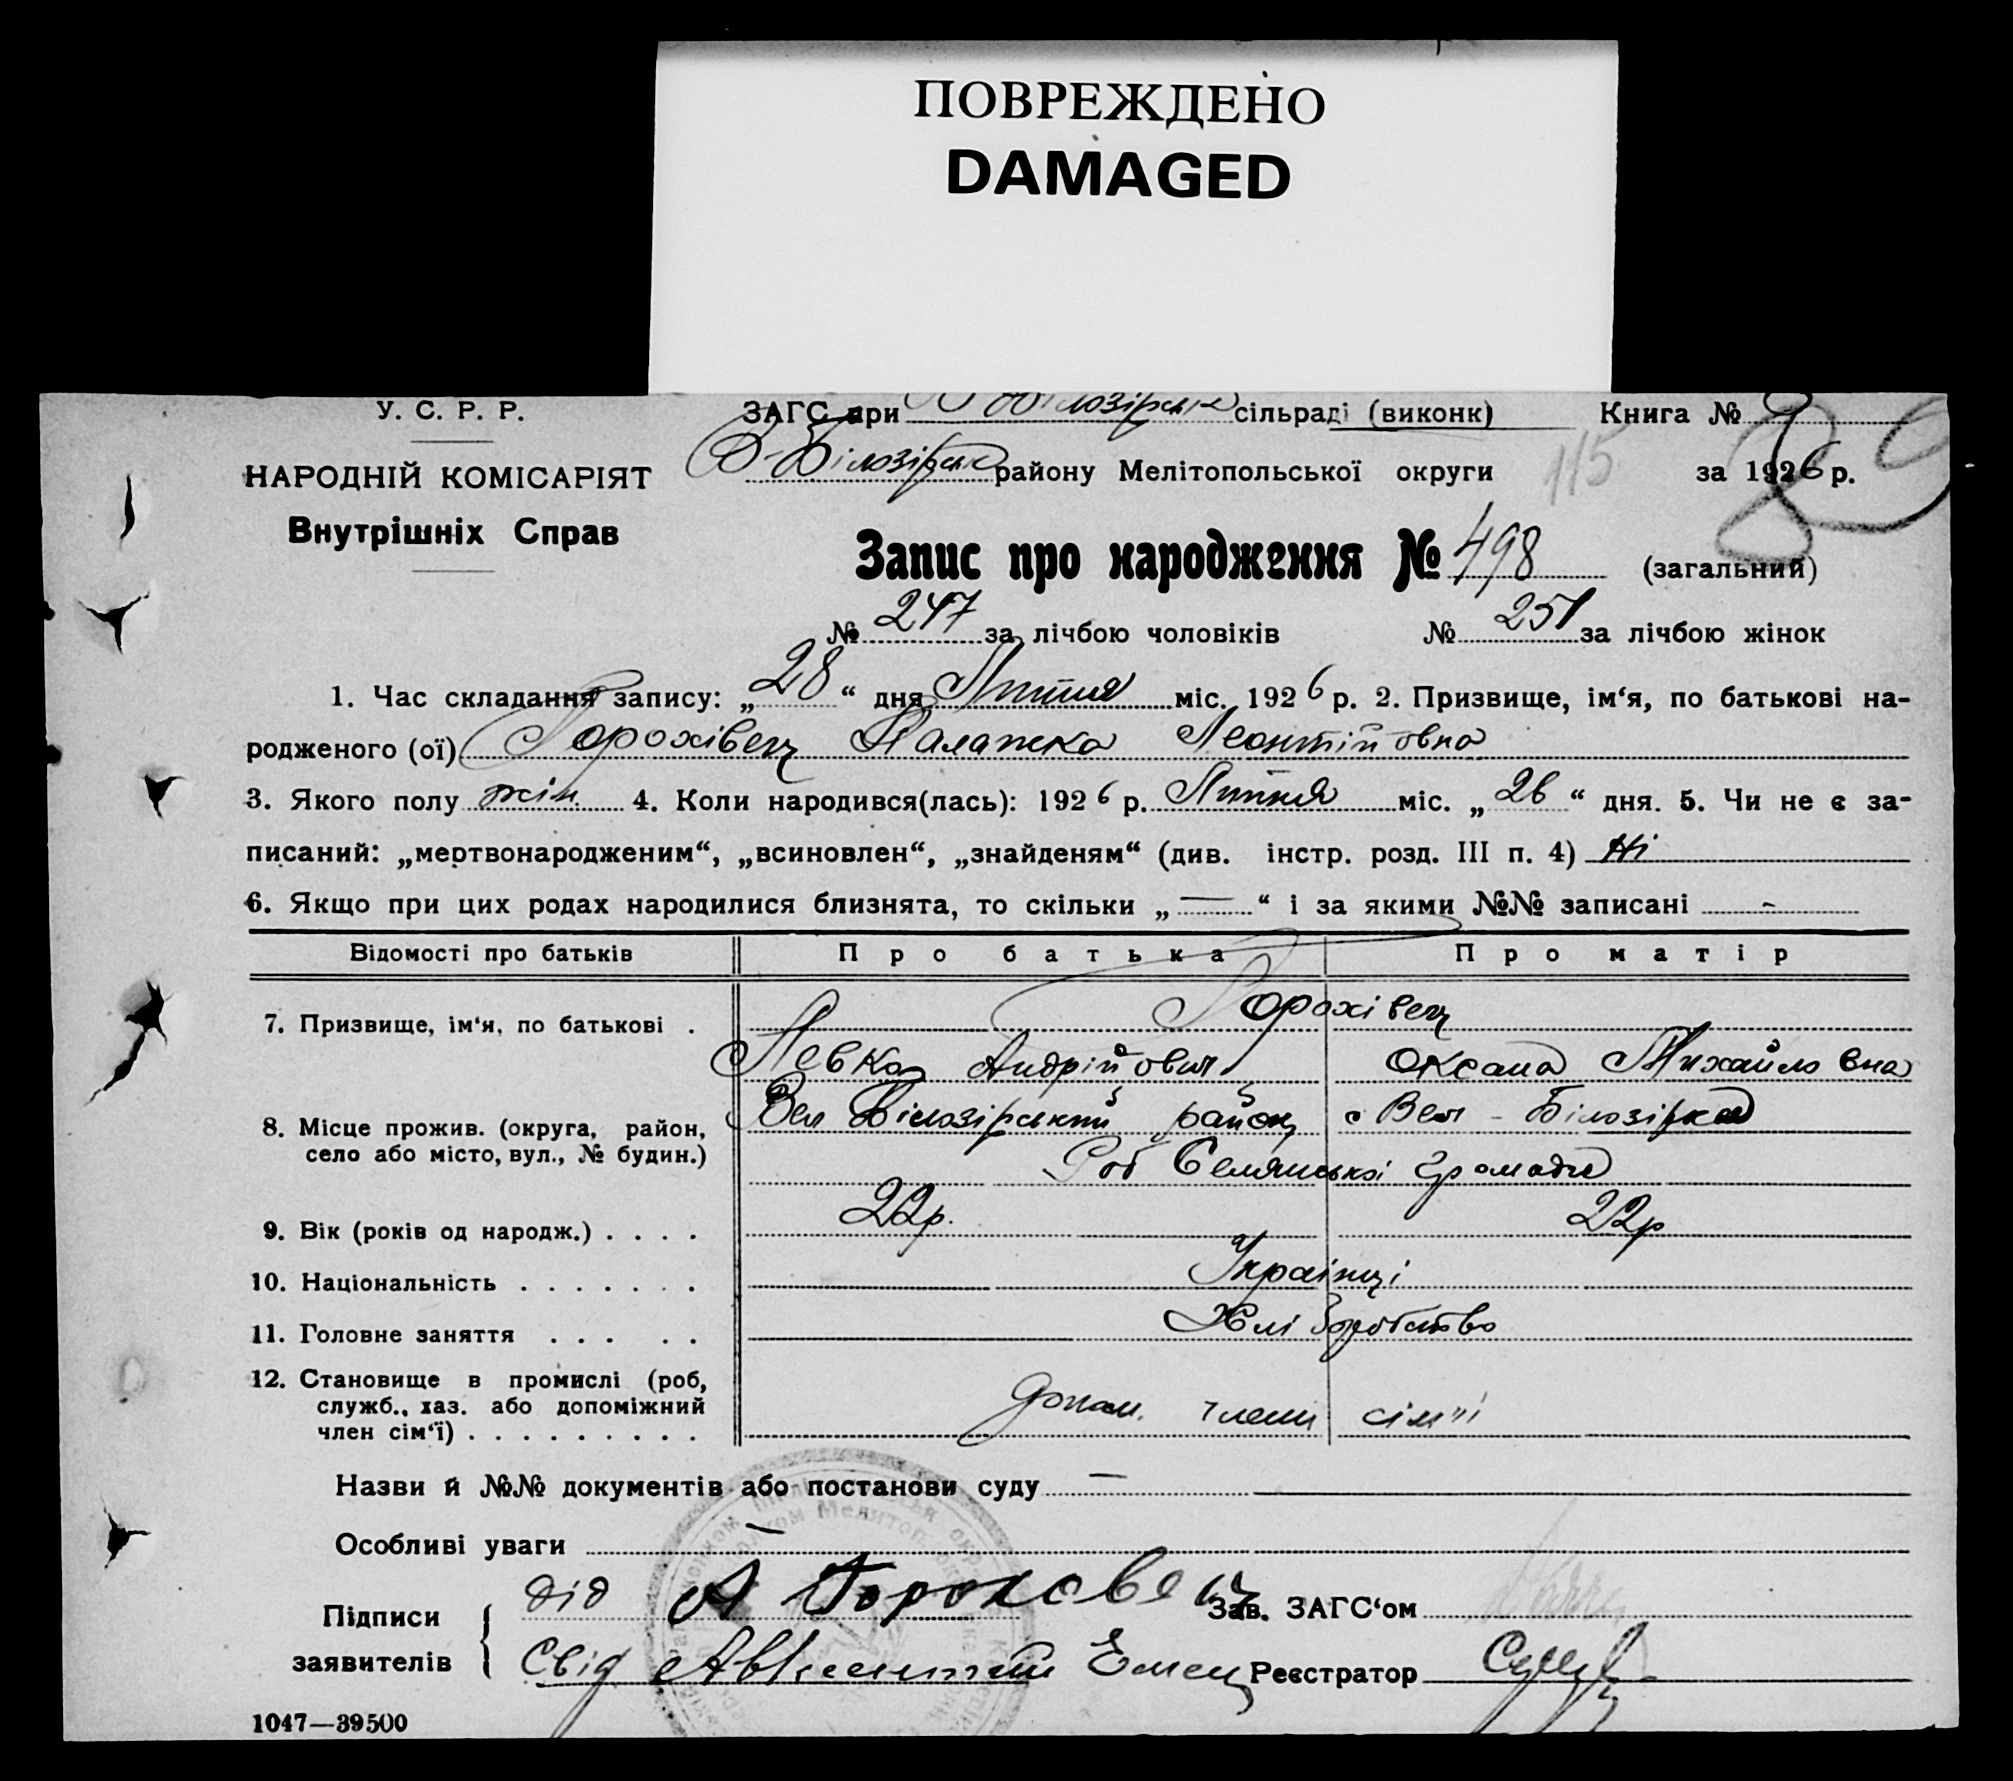 ПОВРЕЖДЕНО
DAMAGED
У. С. Р. Р.
ЗАГС при В Білозірській сільраді (виконк) Книга №
НАРОДНІЙ КОМІСАРІЯТ
В-Білозірськ району Мелітопольської округи 115 за 1926 р.
Внутрішніх Справ
Запис про народження № 498 (загальний)
№ 247 за лічбою чоловіків № 251 за лічбою жінок
1. Час складання запису: „28“ дня Липня міс. 1926 р. 2. Призвище, ім‘я, по батькові на-
родженого (ої) Горохівец Палажка Леонтійовна
3. Якого полу жін. 4. Коли народився(лась): 1926 р. Липня міс. „26“ дня. 5. Чи не є за-
писаний: „мертвонародженим“, „всиновлен“, „знайденям“ (див. інстр. розд. III п. 4) Ні
6. Якщо при цих родах народилися близнята, то скільки „—“ і за якими №№ записані -
Відомості про батьків Про батька Про матір
Горохівец
7. Призвище, ім‘я, по батькові .
Левко Андрійович Оксана Михайловна
Вел Білозірський район с Вел - Білозірка
8. Місце прожив. (округа, район,
село або місто, вул., № будин.)
Роб Селянської Громади
9. Вік (років од народж.) . . . . 22р. 22р
10. Національність . . . . . . . Українці
11. Головне заняття . . . . . Хліборобство
12. Становище в промислі (роб,
служб., хаз. або допоміжний
член сім‘ї) . . . . . . . . . допом. члени сім'ї
Назви й №№ документів або постанови суду —
Особливі уваги —
Підписи
заявителів
дід А Гороховец Зав. ЗАГС‘ом
Свід Авксентий Емец Реєстратор
1047—39500